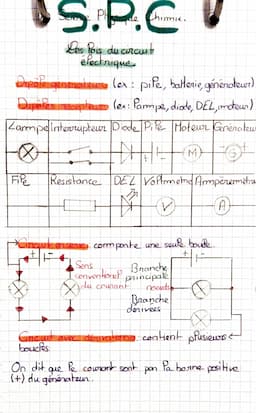 S.P.C
Science Physique Chimie.
Les lois du circuit
électrique
Dipôle générateur (ex : pile, batterie, générateur)
Dipôles récepteur (ex: Lampe, diode, DEL, moteur)
Lampe Interrupteur Diode Pile Moteur Générateur
M G
File Résistance DEL Voltmètre Ampèremètre
V A
Circuit en série comporte une seule boucle.
Sens Branche
conventionel principale
du courant noeuds
Branche
dérivées
Circuit avec dérivations contient plusieurs
boucles.
On dit que le courant sort par la borne positive
(+) du générateur.